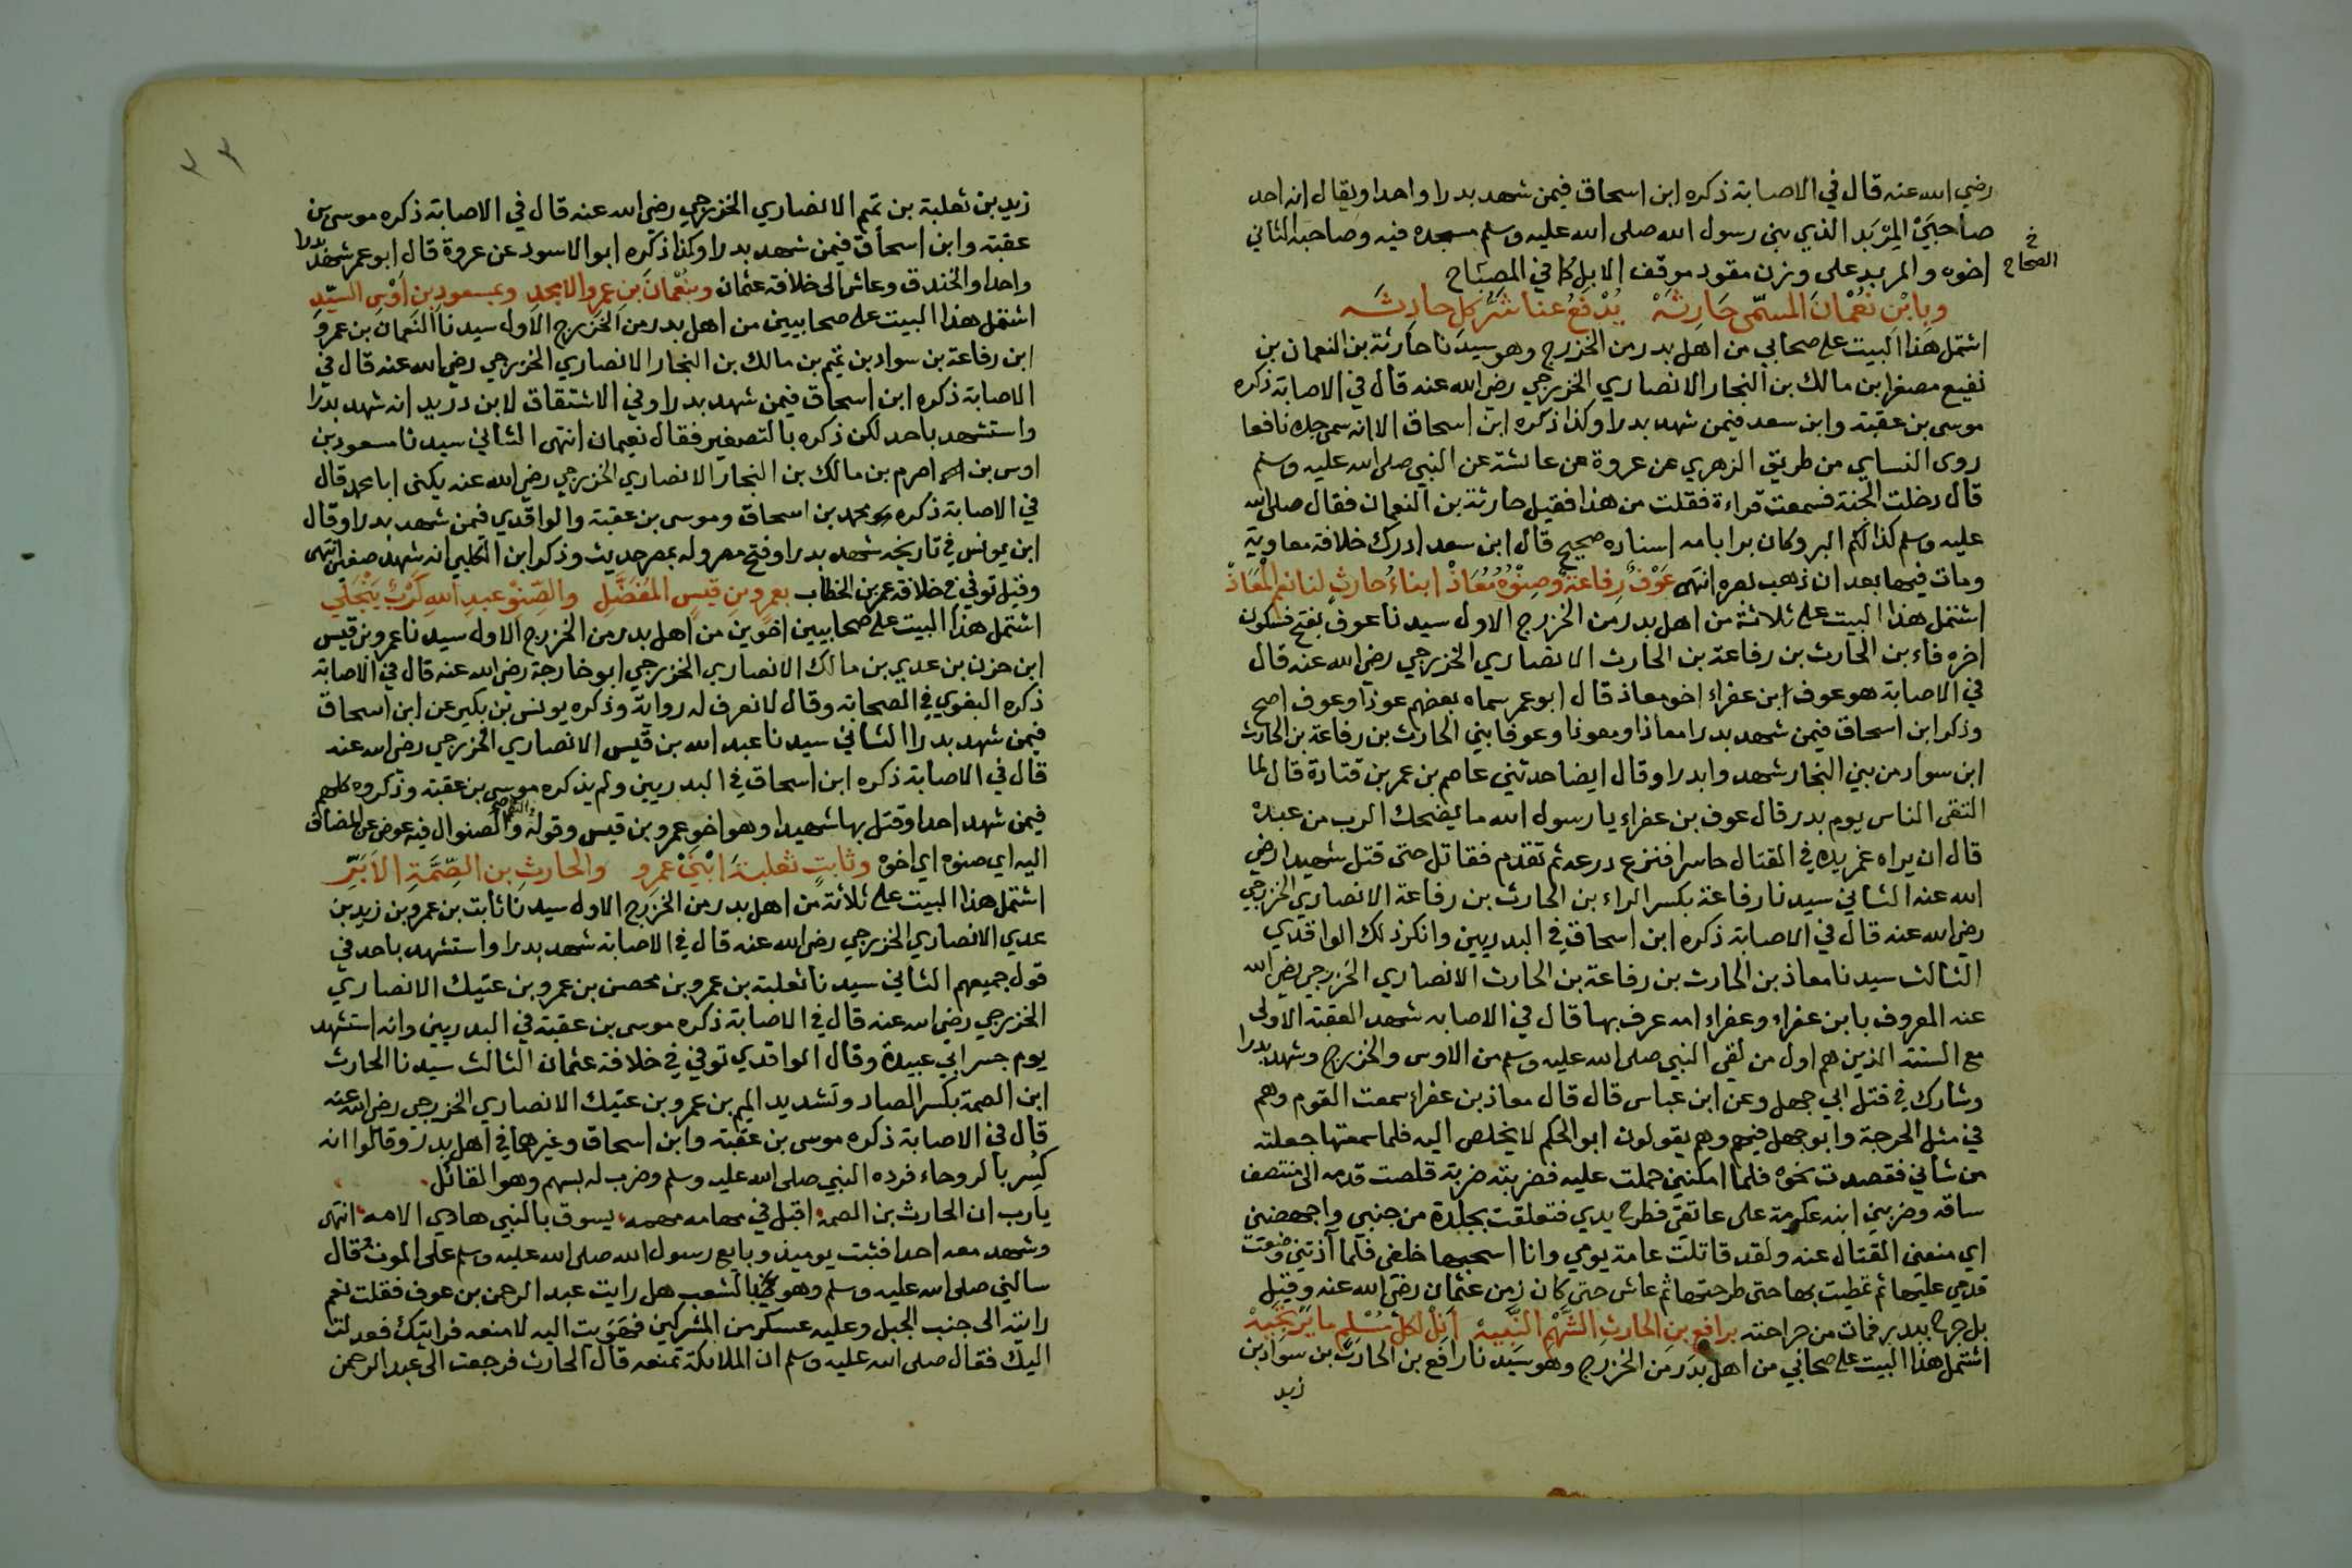 رضي الله عنه قال في الاصابة ذكره ابن اسحاق فيمن شهد بدرا واحدا ويقال انه احد
صاحبَيْ المِرْبَد الذي بنى رسول الله صلى الله عليه وسلم مسجده فيه وصاحبه الثاني
اخوه والمربد على وزن مقود موقف الابل كما في المصباح
خ
الصحاح
وبابْنِ نعْمَانَ المسمّى حَارِثَهْ يُدْفَعُ عنا شَرُّ كل حادِثَه
اشتمل هذا البيت على صحابي من اهل بدر من الخزرج وهو سيدنا حارثة بن النعمان بن
نفيع مصغرا بن مالك بن النجار الانصاري الخزرجي رضي الله عنه قال في الاصابة ذكره
موسى بن عقبة وابن سعد فيمن شهد بدرا وكذا ذكره ابن اسحاق الا انه سمى جده نافعا
روى النساي من طريق الزهري عن عروة عن عائشة عن النبي صلى الله عليه وسلم
قال دخلت الجنة فسمعت قراءة فقلت من هذا فقيل حارثة بن النعمان فقال صلى الله
عليه وسلم كذالكم البر وكان برا بامه اسناده صحيح قال ابن سعد ادرك خلافة معاوية
ومات فيها بعد ان ذهب بصره انتهى عَوْفٌ رِفاعةٌ وصِنْوُهُ مُعَاذْ ابناءُ حارثٍ لنا نعم المْعَاذْ
اشتمل هذا البيت على ثلاثة من اهل بدر من الخزرج الاول سيدنا عوف بفتح فسكون
اخره فاء بن الحارث بن رفاعة بن الحارث الانصاري الخزرجي رضي الله عنه قال
في الاصابة هو عوف ابن عفراء اخو معاذ قال ابو عمر سماه بعضهم عوذا وعوف اصح
وذكر ابن اسحاق فيمن شهد بدرا معاذا ومعوذا وعوفا بني الحارث بن رفاعة بن الحارث
ابن سواد من بني النجار شهدوا بدرا وقال ايضا حدثني عاصم بن عمر بن قتادة قال لما
التقى الناس يوم بدر قال عوف بن عفراء يا رسول الله ما يضحك الرب من عبده
قال ان يراه غمز يده في القتال حاسرا فنزع درعه ثم تقدم فقاتل حتى قتل شهيدا رضي
الله عنه الثاني سيدنا رفاعة بكسر الراء بن الحارث بن رفاعة الانصاري الخزرجي
رضي الله عنه قال في الاصابة ذكره ابن اسحاق في البدريين وانكر ذلك الواقدي
الثالث سيدنا معاذ بن الحارث بن رفاعة بن الحارث الانصاري الخزرجي رضي الله
عنه المعروف بابن عفراء وعفراء امه عرف بها قال في الاصابه شهد العقبة الاولى
مع الستة الذين هم اول من لقي النبي صلى الله عليه وسلم من الاوس والخزرج وشهد بدرا
وشارك في قتل ابي جهل وعن ابن عباس قال قال معاذ بن عفراء سمعت القوم وهم
في مثل الحرجة وابو جهل فيهم وهم يقولون ابو الحكم لا يخلص اليه فلما سمعتها جعلته
من شاني فقصدت نحوه فلما امكنني حملت عليه فضربته ضربة قلصت قدمه الى منتصف
ساقه وضربني ابنه عكرمة على عاتقي فطرح يدي فتعلقت بجلدة من جنبي واجهضني
اي منعني القتال عنه ولقد قاتلت عامة يومي وانا اسحبها خلفي فلما آذتني وضعت
قدمي عليها ثم تمطيت بها حتى طرحتها ثم عاش حتى كان زمن عثمان رضي الله عنه وقيل
بل جرح ببدر فمات من جراحته برافعِ بنِ الحارثِ الشَّهْمِ النَّبِيهْ اَنِلْ لكل مُسْلِمٍ ما يَرْتَجِيهْ
اشتمل هذا البيت على صحابي من اهل بدر من الخزرج وهو سيدنا رافع بن الحارث بن سواد بن
زيد
٣٣
زيد بن ثعلبة بن تميم الانصاري الخزرجي رضي الله عنه قال في الاصابة ذكره موسى بن
عقبة وابن اسحاق فيمن شهد بدرا وكذا ذكره ابو الاسود عن عروة قال ابو عمر شهد بدرا
واحدا والخندق وعاش الى خلافة عثمان وبنُعْمانَ بنِ عمرو الامجد وبمسعودِ بنِ اَوْسِ السيّدِ
اشتمل هذا البيت على صحابيين من اهل بدر من الخزرج الاول سيدنا النعمان بن عمرو
ابن رفاعة بن سواد بن تميم بن مالك بن النجار الانصاري الخزرجي رضي الله عنه قال في
الاصابة ذكره ابن اسحاق فيمن شهد بدرا وفي الاشتقاق لابن دريد انه شهد بدرا
واستشهد باحد لكن ذكره بالتصغير فقال نعيمان انتهى الثاني سيدنا مسعود بن
اوس بن اصرم بن مالك بن النجار الانصاري الخزرجي رضي الله عنه يكنى ابا محمد قال
في الاصابة ذكره محمد بن اسحاق وموسى بن عقبة والواقدي فيمن شهد بدرا وقال
ابن يونس في تاريخه شهد بدرا وفتح مصر وله بمصر حديث وذكر ابن الكلبي انه شهد صفين انتهى
وقيل توفي في خلافة عمر بن الخطاب بعمرِو بنِ قيسٍ المُفَضَّلِ والصِّنْوِ عبدِ اللهِ كَرْبُ يَنْجَلي
اشتمل هذا البيت على صحابيين اخوين من اهل بدر من الخزرج الاول سيدنا عمرو بن قيس
ابن حزن بن عدي بن مالك الانصاري الخزرجي ابو خارجة رضي الله عنه قال في الاصابة
ذكره البغوي في الصحابة وقال لا نعرف له رواية وذكره يونس بن بكير عن ابن اسحاق
فيمن شهد بدرا الثاني سيدنا عبد الله بن قيس الانصاري الخزرجي رضي الله عنه
قال في الاصابة ذكره ابن اسحاق في البدريين ولم يذكره موسى بن عقبة وذكروه كلهم
فيمن شهد احدا وقتل بها شهيدا وهو اخو عمرو بن قيس وقوله والصنو ال فيه عوض عن المضاف
اليه اي صنوه اي اخوه وثابتٍ ثعلبةَ ابْنَيْ عمرو والحارثِ بنِ الصِّمَّةِ الاَبَرِّ
اشتمل هذا البيت على ثلاثة من اهل بدر من الخزرج الاول سيدنا ثابت بن عمرو بن زيد بن
عدي الانصاري الخزرجي رضي الله عنه قال في الاصابة شهد بدرا واستشهد باحد في
قول جميعهم الثاني سيدنا ثعلبة بن عمرو بن محصن بن عمرو بن عتيك الانصاري
الخزرجي رضي الله عنه قال في الاصابة ذكره موسى بن عقبة في البدريين وانه استشهد
يوم جسر ابي عبيدة وقال الواقدي توفي في خلافة عثمان الثالث سيدنا الحارث
ابن الصمة بكسر الصاد وتشديد الميم بن عمرو بن عتيك الانصاري الخزرجي رضي الله عنه
قال في الاصابة ذكره موسى بن عقبة وابن اسحاق وغيرهما في اهل بدر وقالوا انه
كُسِر بالروحاء فرده النبي صلى الله عليه وسلم وضرب له بسهم وهو القائل
يا رب ان الحارث بن الصمه اقبل في مهامه مهمه يسوق بالنبي هادي الامه انتهى
وشهد معه احدا فثبت يوميذ وبايع رسول الله صلى الله عليه وسلم على الموت وقال
سالني صلى الله عليه وسلم وهو بالشعب هل رايت عبد الرحمن بن عوف فقلت نعم
رايته الى جنب الجبل وعليه عسكر من المشركين فهَوَيت اليه لامنعه فرايتك فعدلت
اليك فقال صلى الله عليه وسلم ان الملائكة تمنعه قال الحارث فرجعت الى عبد الرحمن